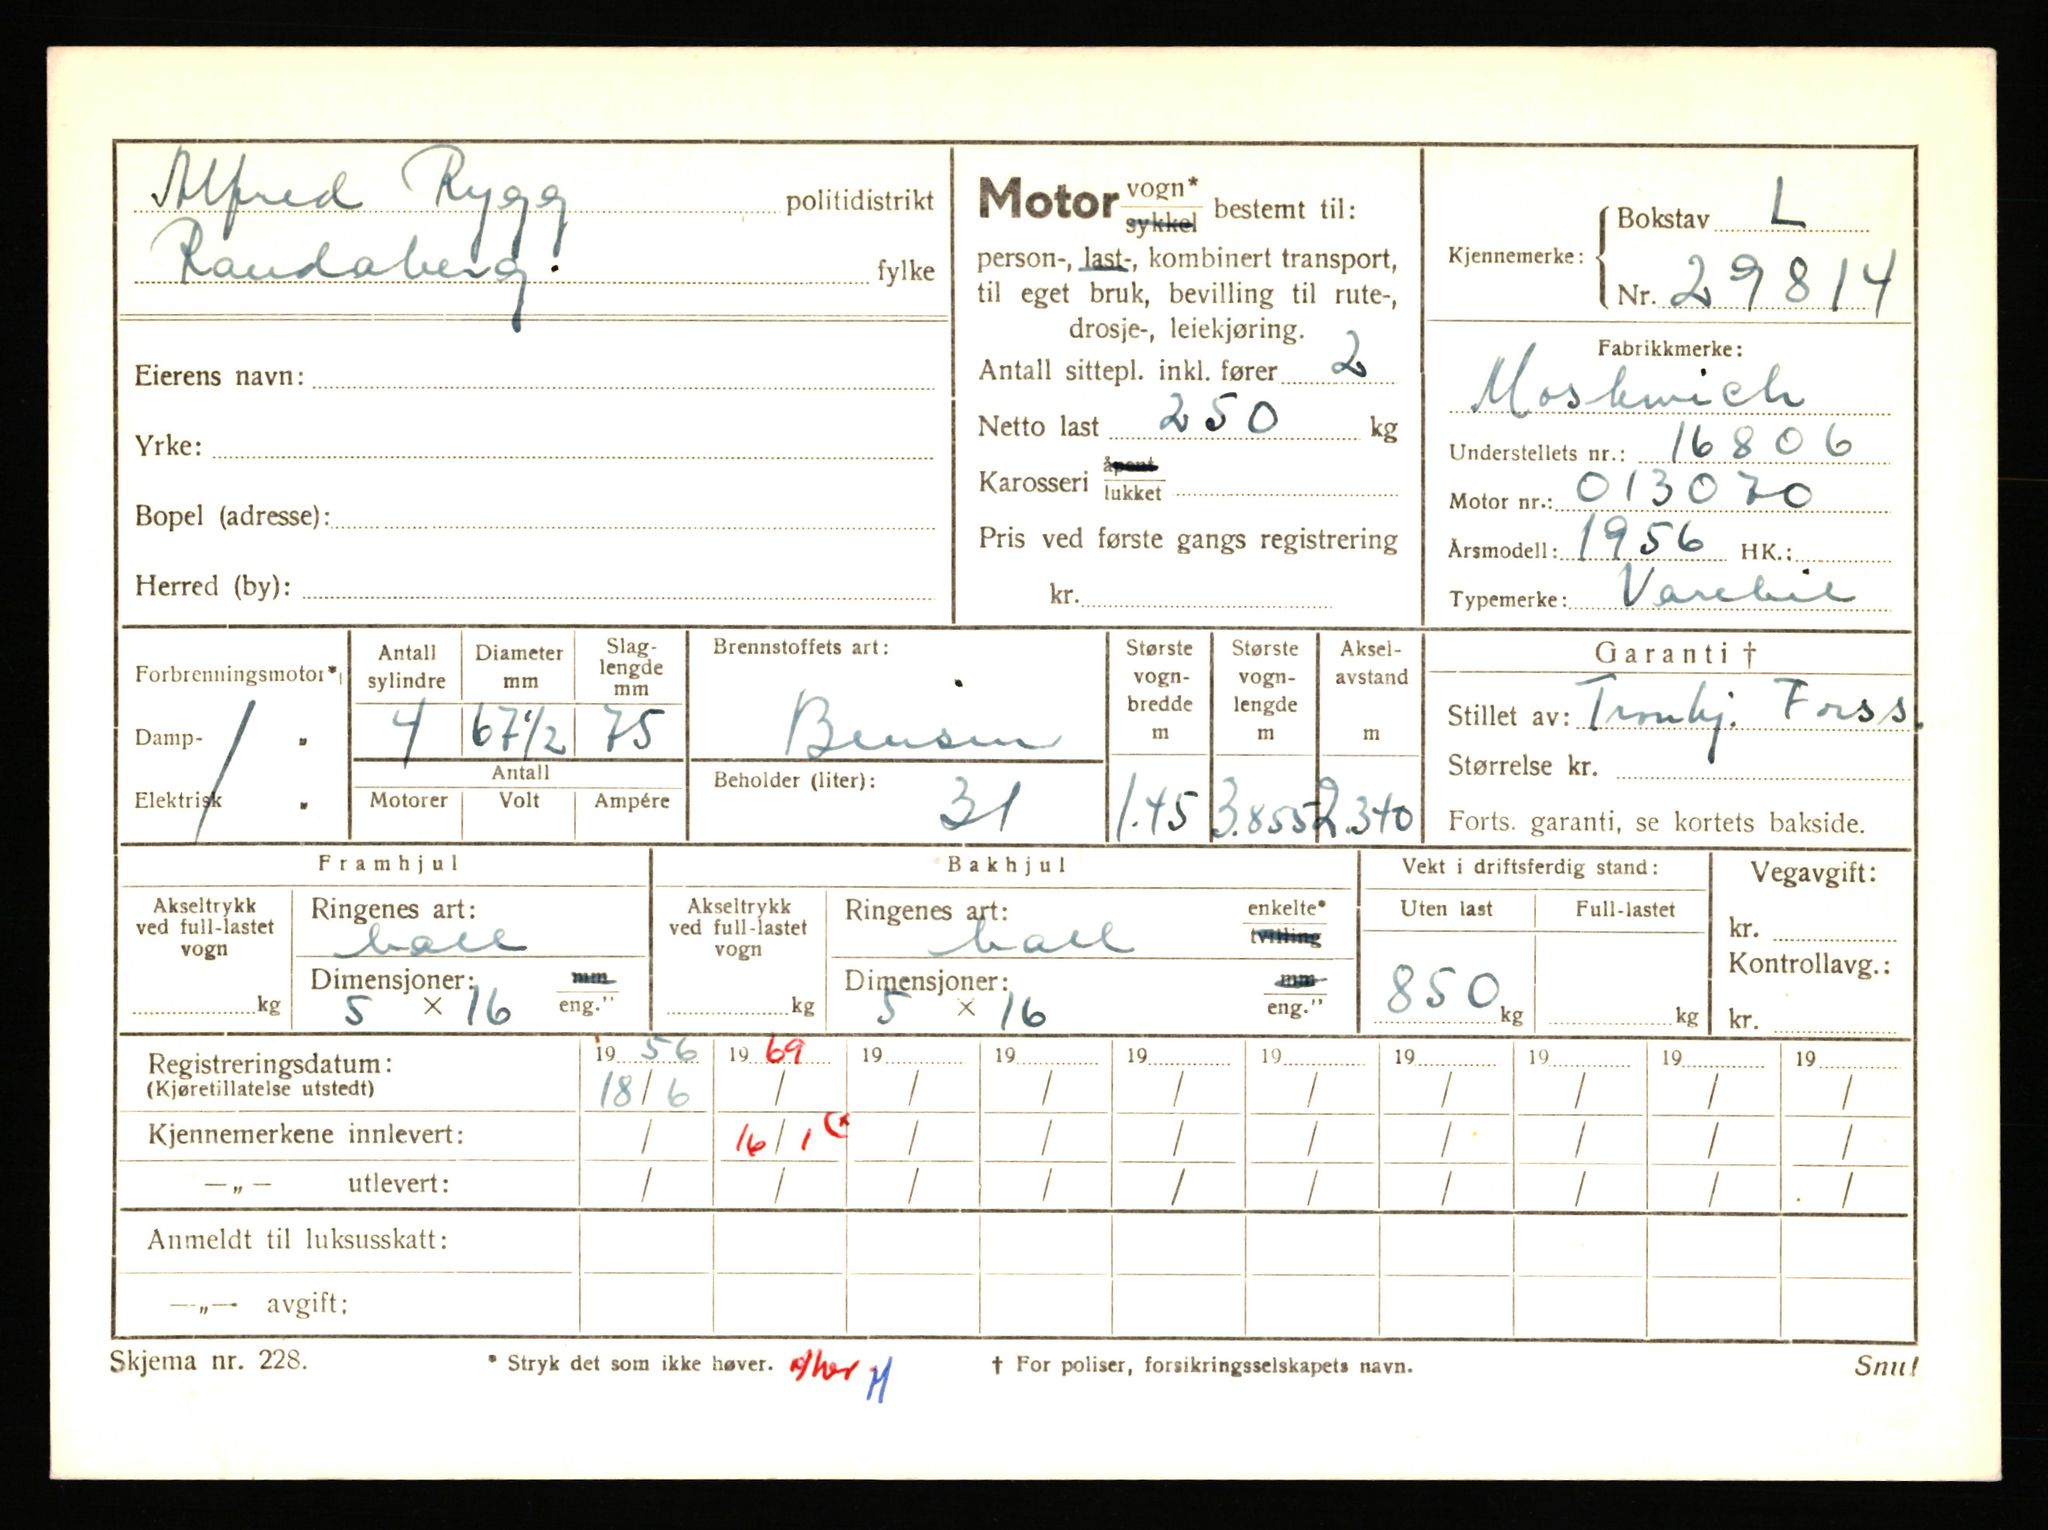 Alfred Rygg politidistrikt
Randaberg. fylke
Eierens navn:
Yrke:
Bopel (adresse):
Herred (by):
Motor vogn* sykkel bestemt til:
person-, last-, kombinert transport,
til eget bruk, bevilling til rute-,
drosje-, leiekjøring.
Antall sittepl. inkl. fører 2
Netto last 250 kg
Karosseri åpent lukket
Pris ved første gangs registrering
kr.
Kjennemerke: Bokstav L
Nr. 29814
Fabrikkmerke:
Moskwich
Understellets nr.: 16806
Motor nr.: 013070
Årsmodell: 1956 HK.:
Typemerke: Varebil
Forbrenningsmotor*
Damp- "
Elektrisk "
Antall sylindre Diameter mm Slag-lengde mm
4 67 1/2 75
Antall
Motorer Volt Ampére
Brennstoffets art:
Bensin
Beholder (liter):
31
Største vogn-bredde m Største vogn-lengde m Aksel-avstand m
1.45 3.855 2.340
Garanti †
Stillet av: Tronhj. Forss.
Størrelse kr.
Forts. garanti, se kortets bakside.
Framhjul
Akseltrykk ved full-lastet vogn
kg
Ringenes art:
ball
Dimensjoner: mm
5 × 16 eng."
Bakhjul
Akseltrykk ved full-lastet vogn
kg
Ringenes art: enkelte*
ball tvilling
Dimensjoner: mm
5 × 16 eng."
Vekt i driftsferdig stand:
Uten last Full-lastet
850 kg kg
Vegavgift:
kr.
Kontrollavg.:
kr.
Registreringsdatum: 19 56 19 69 19 19 19 19 19 19 19 19
(Kjøretillatelse utstedt) 18/6 / / / / / / / / /
Kjennemerkene innlevert: / 16/1 (* / / / / / / / /
—„— utlevert: / / / / / / / / / /
Anmeldt til luksusskatt:
—„— avgift:
Skjema nr. 228.
* Stryk det som ikke høver.
† For poliser, forsikringsselskapets navn.